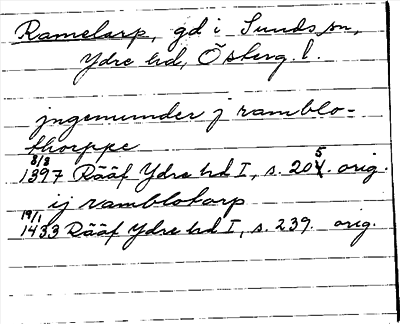 Ramelarp, gd i Sunds sn,
Ydre hd, Österg. l.
jngemunder j ramblo-
thorppe
8/8
1397 Rääf Ydre hd I, s. 205. orig.
ij ramblotorp
19/1
1433 Rääf Ydre hd I, s. 239. orig.